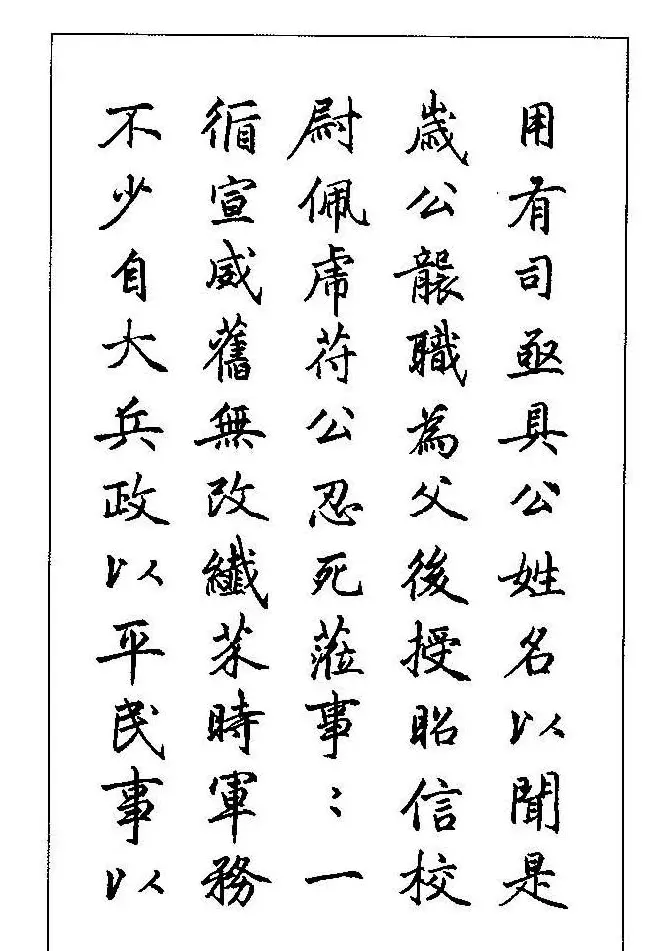 用有司亟具公姓名以聞是
歲公襲職為父後授昭信校
尉佩虎符公忍死蒞事：一
循宣威舊無改纖芥時軍務
不少自大兵政以平民事以